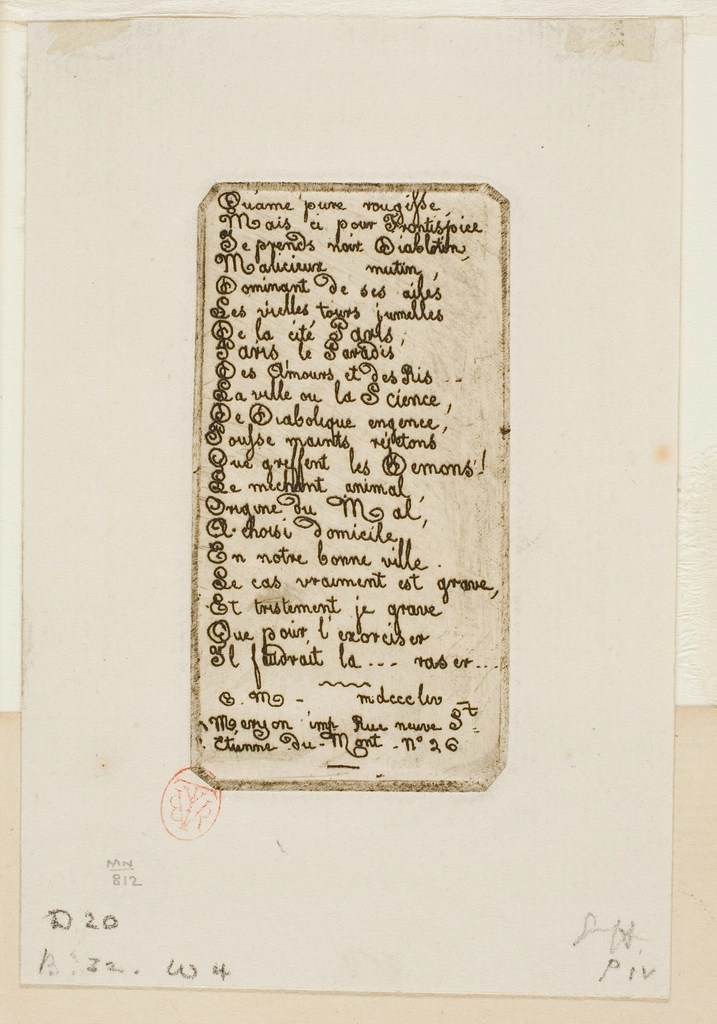 Qu'âme pure rougisse,
Mais ci pour Frontispice
Je prends noir Diablotin,
Malicieux mutin,
Dominant de ses ailes
Les vielles tours jumelles
De la cité Paris,
Paris le Paradis
Des Amours et des Ris ...
La ville ou la Science,
De Diabolique engence,
Pousse maints rejetons
Que greffent les Demons!
Le mechant animal
Origine du Mal,
A choisi domicile
En notre bonne ville.
Le cas vraiment est grave,
Et tristement je grave
Que pour l'exorciser
Il faudrait la ... raser ...
C. M - mdcccliv
Meryon imp Rue neuve St
Etienne du-Mont - No 26
MN
812
D 20
B 32. W 4
P IV